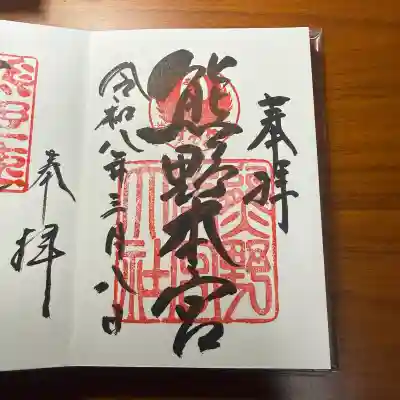 奉拝
熊野本宮
熊野本宮大社
令和八年三月八日
奉拝